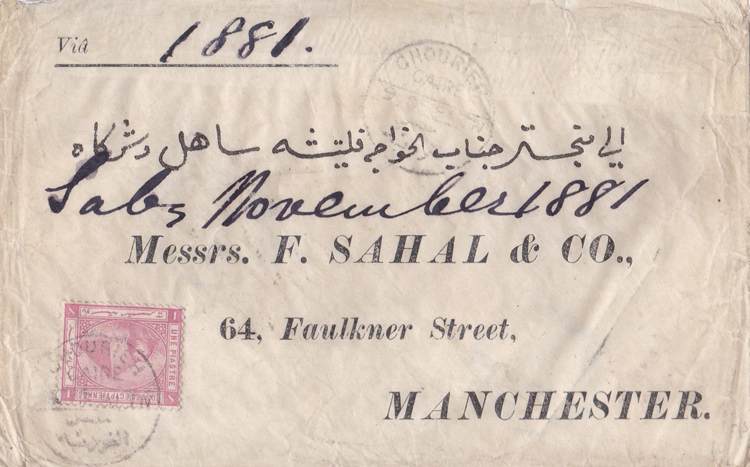 Via 1881.
GHOURIEH
إلى منجستر جناب الخواجه فليتشه ساهل وشركاه
November 1881
Messrs. F. SAHAL & CO.,
64, Faulkner Street,
MANCHESTER.
UNE PIASTRE